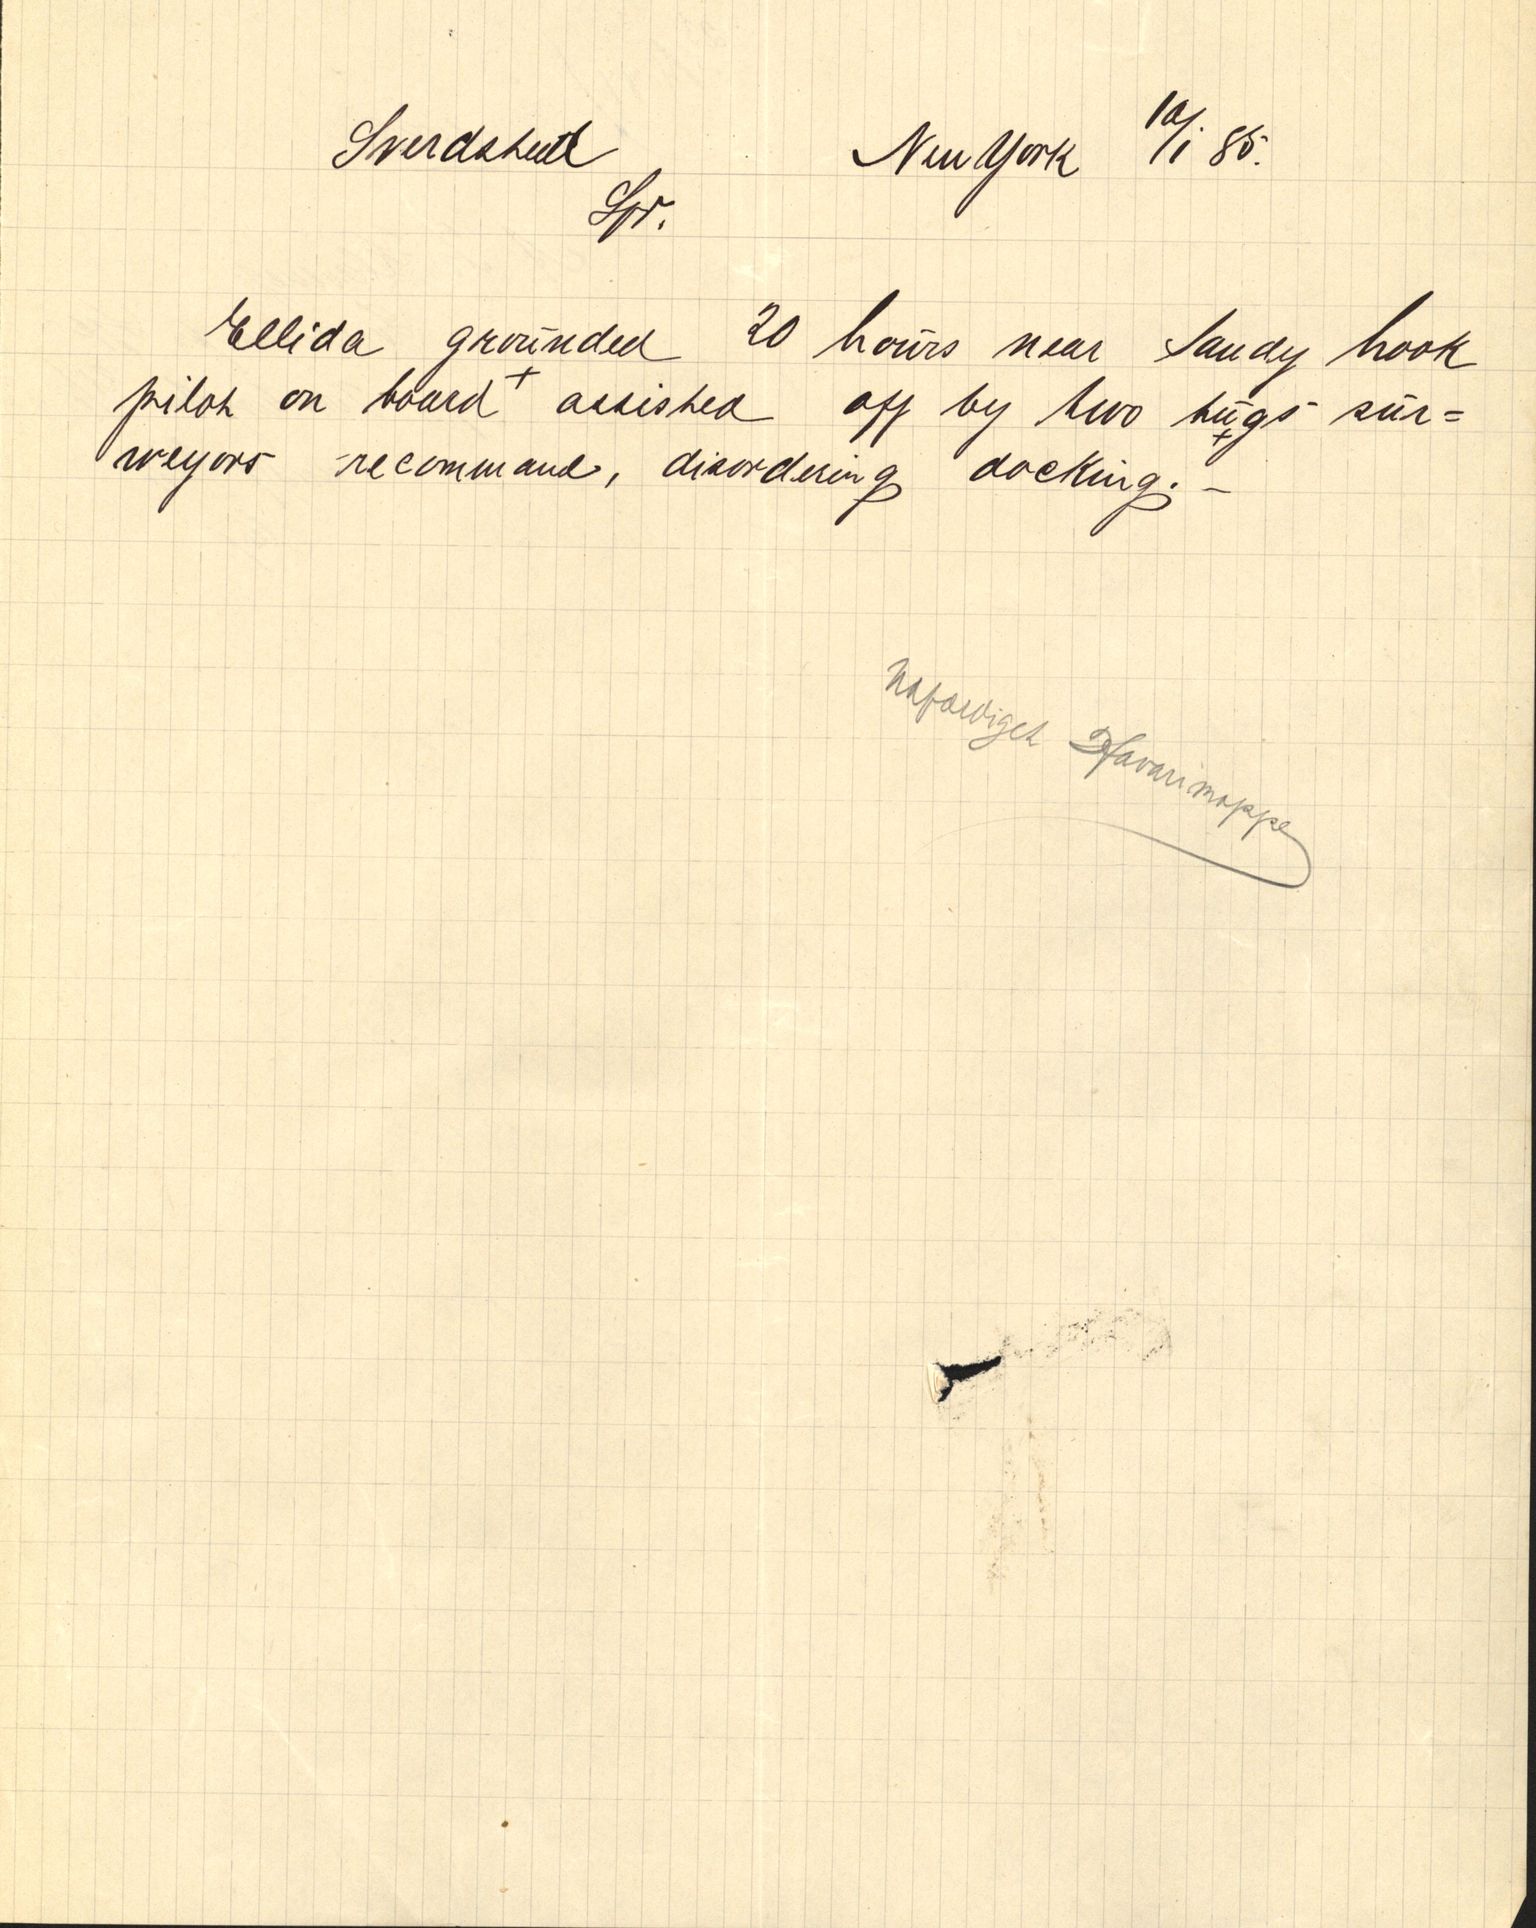 Sverdsteel New York 10/1 85.
Spr.
Ellida grounded 20 hours near Sandy hook
pilot on board + assisted off by two tugs + sur=
weyors recommand, disordering docking. —
Uafærdiget Havarimappe